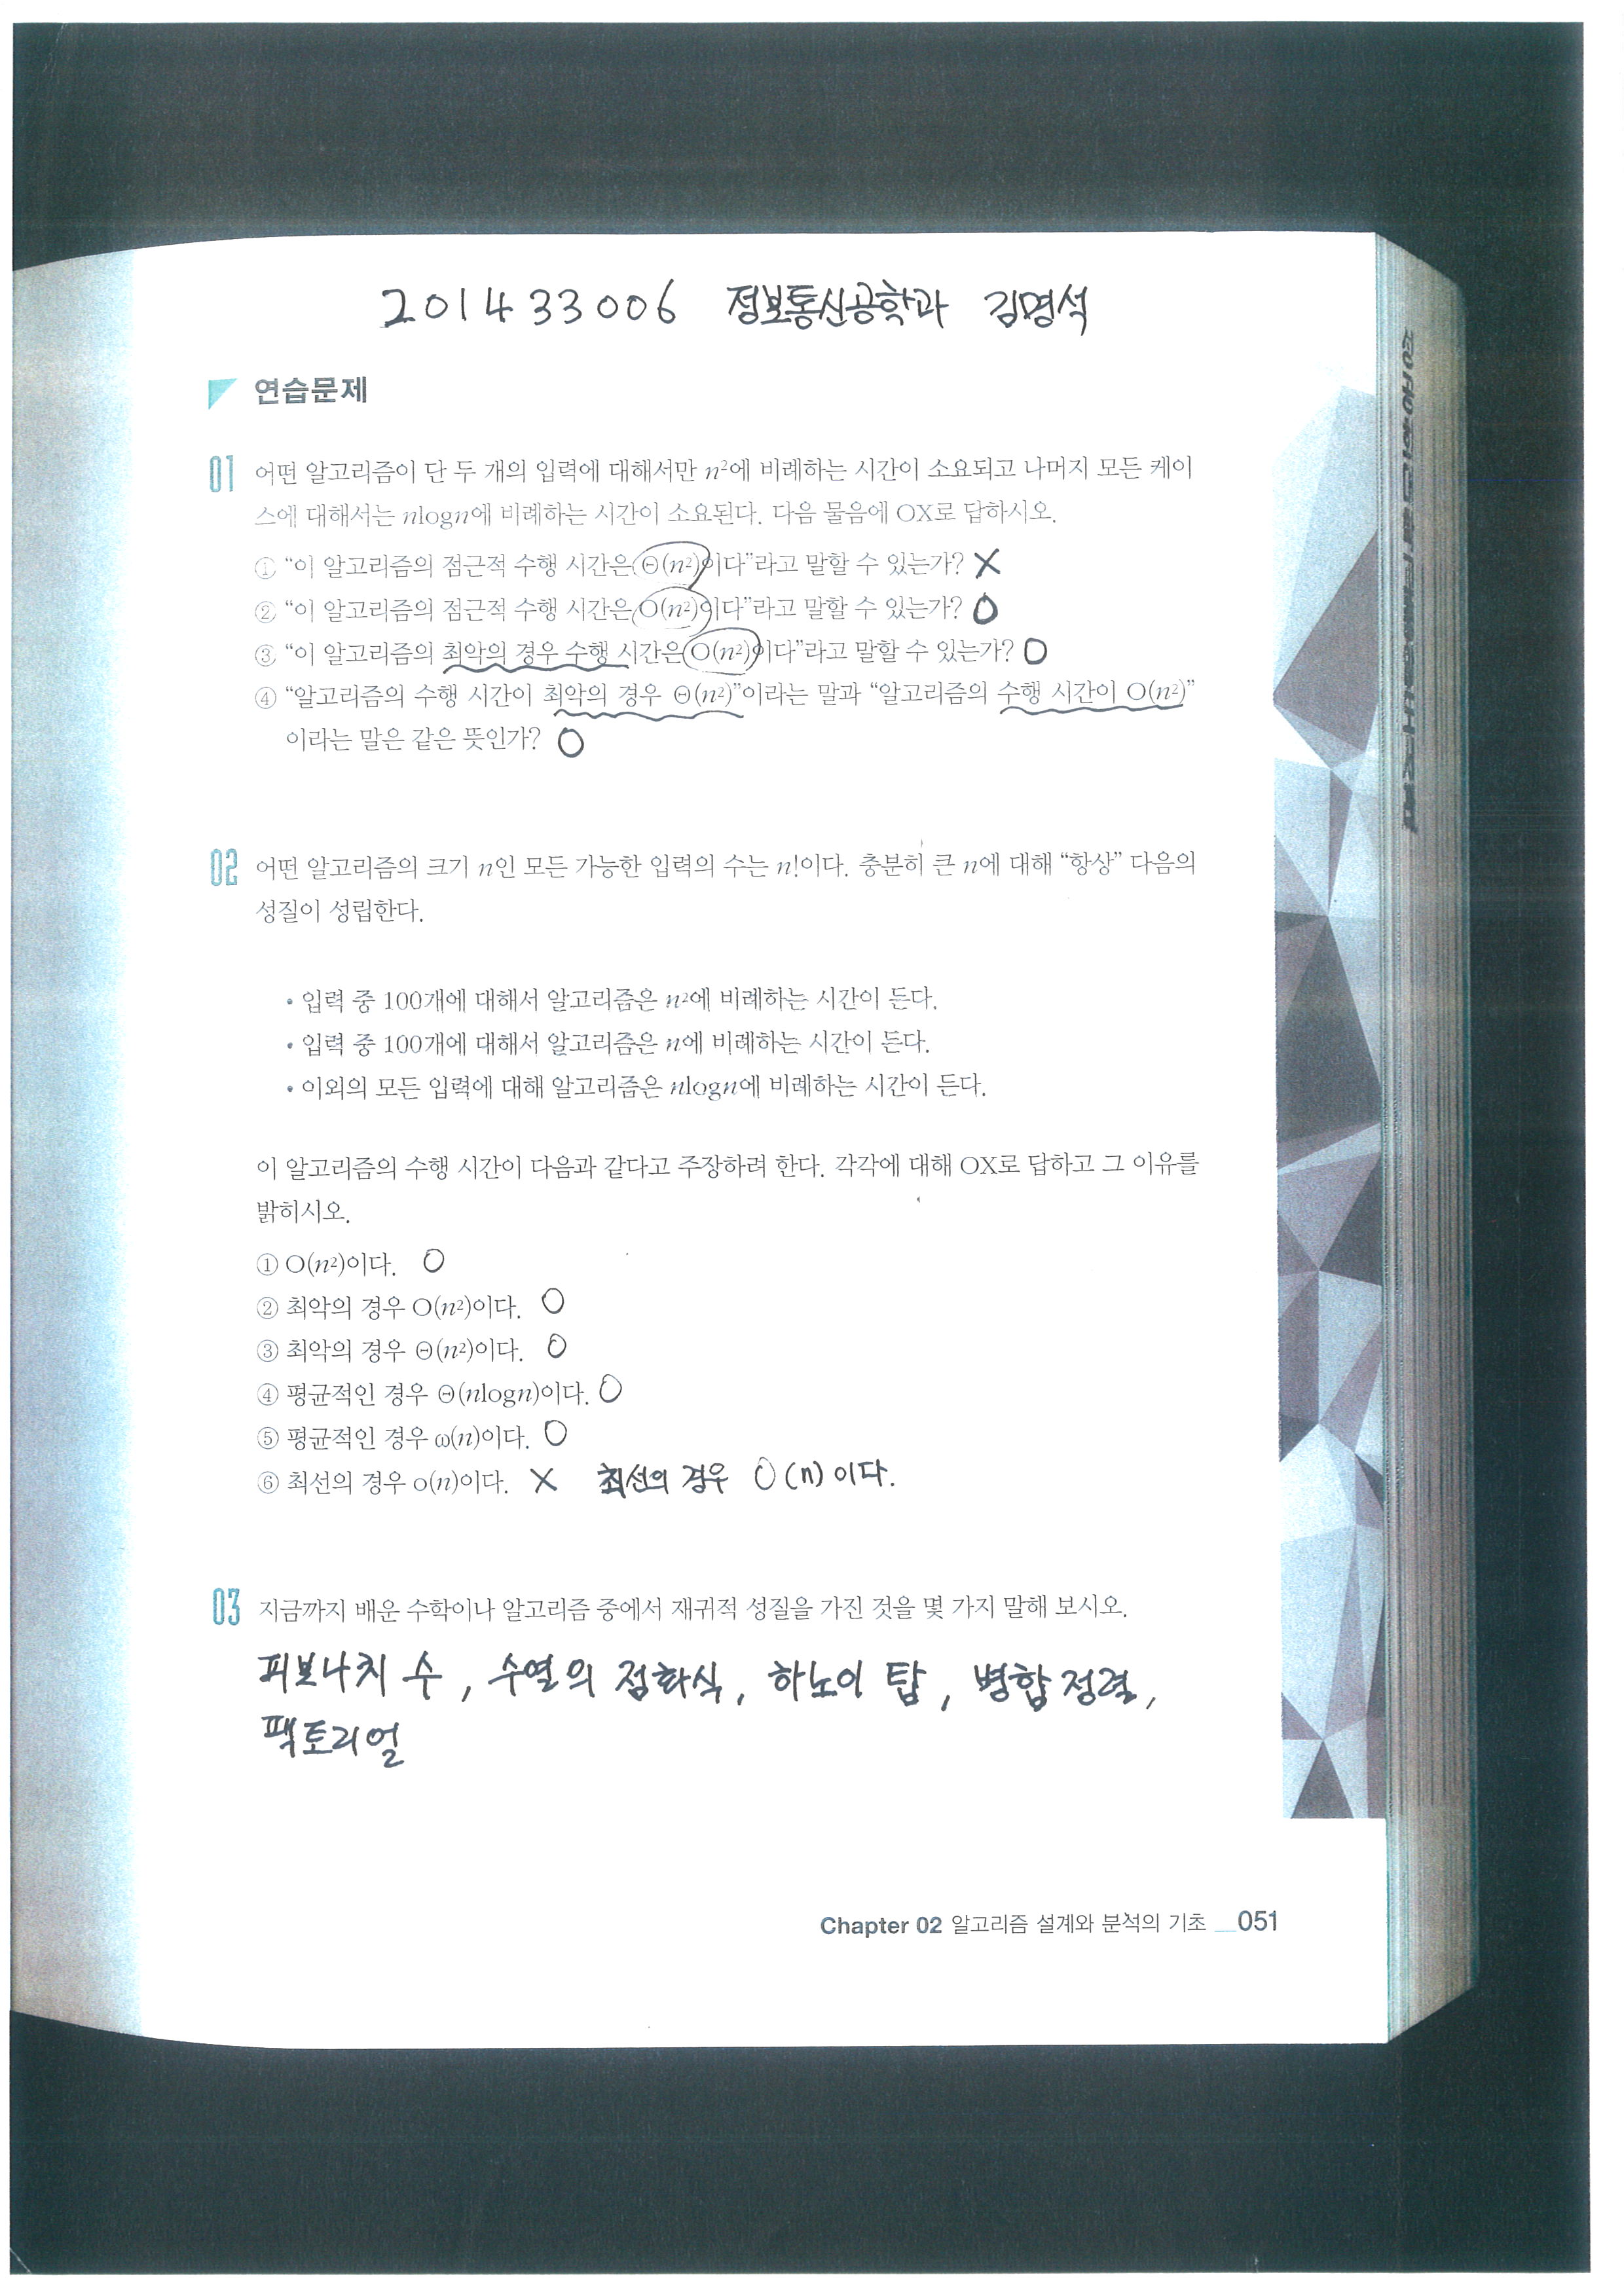 201433006 정보통신공학과 김명석
연습문제
01 어떤 알고리즘이 단 두 개의 입력에 대해서만 n²에 비례하는 시간이 소요되고 나머지 모든 케이
스에 대해서는 nlogn에 비례하는 시간이 소요된다. 다음 물음에 OX로 답하시오.
① “이 알고리즘의 점근적 수행 시간은 Θ(n²)이다”라고 말할 수 있는가? X
② “이 알고리즘의 점근적 수행 시간은 O(n²)이다”라고 말할 수 있는가? O
③ “이 알고리즘의 최악의 경우 수행 시간은 O(n²)이다”라고 말할 수 있는가? O
④ “알고리즘의 수행 시간이 최악의 경우 Θ(n²)”이라는 말과 “알고리즘의 수행 시간이 O(n²)”
이라는 말은 같은 뜻인가? O
02 어떤 알고리즘의 크기 n인 모든 가능한 입력의 수는 n!이다. 충분히 큰 n에 대해 “항상” 다음의
성질이 성립한다.
• 입력 중 100개에 대해서 알고리즘은 n²에 비례하는 시간이 든다.
• 입력 중 100개에 대해서 알고리즘은 n에 비례하는 시간이 든다.
• 이외의 모든 입력에 대해 알고리즘은 nlogn에 비례하는 시간이 든다.
이 알고리즘의 수행 시간이 다음과 같다고 주장하려 한다. 각각에 대해 OX로 답하고 그 이유를
밝히시오.
① O(n²)이다. O
② 최악의 경우 O(n²)이다. O
③ 최악의 경우 Θ(n²)이다. O
④ 평균적인 경우 Θ(nlogn)이다. O
⑤ 평균적인 경우 ω(n)이다. O
⑥ 최선의 경우 o(n)이다. X 최선의 경우 O(n)이다.
03 지금까지 배운 수학이나 알고리즘 중에서 재귀적 성질을 가진 것을 몇 가지 말해 보시오.
피보나치 수, 수열의 점화식, 하노이 탑, 병합정렬,
팩토리얼
Chapter 02 알고리즘 설계와 분석의 기초 __051